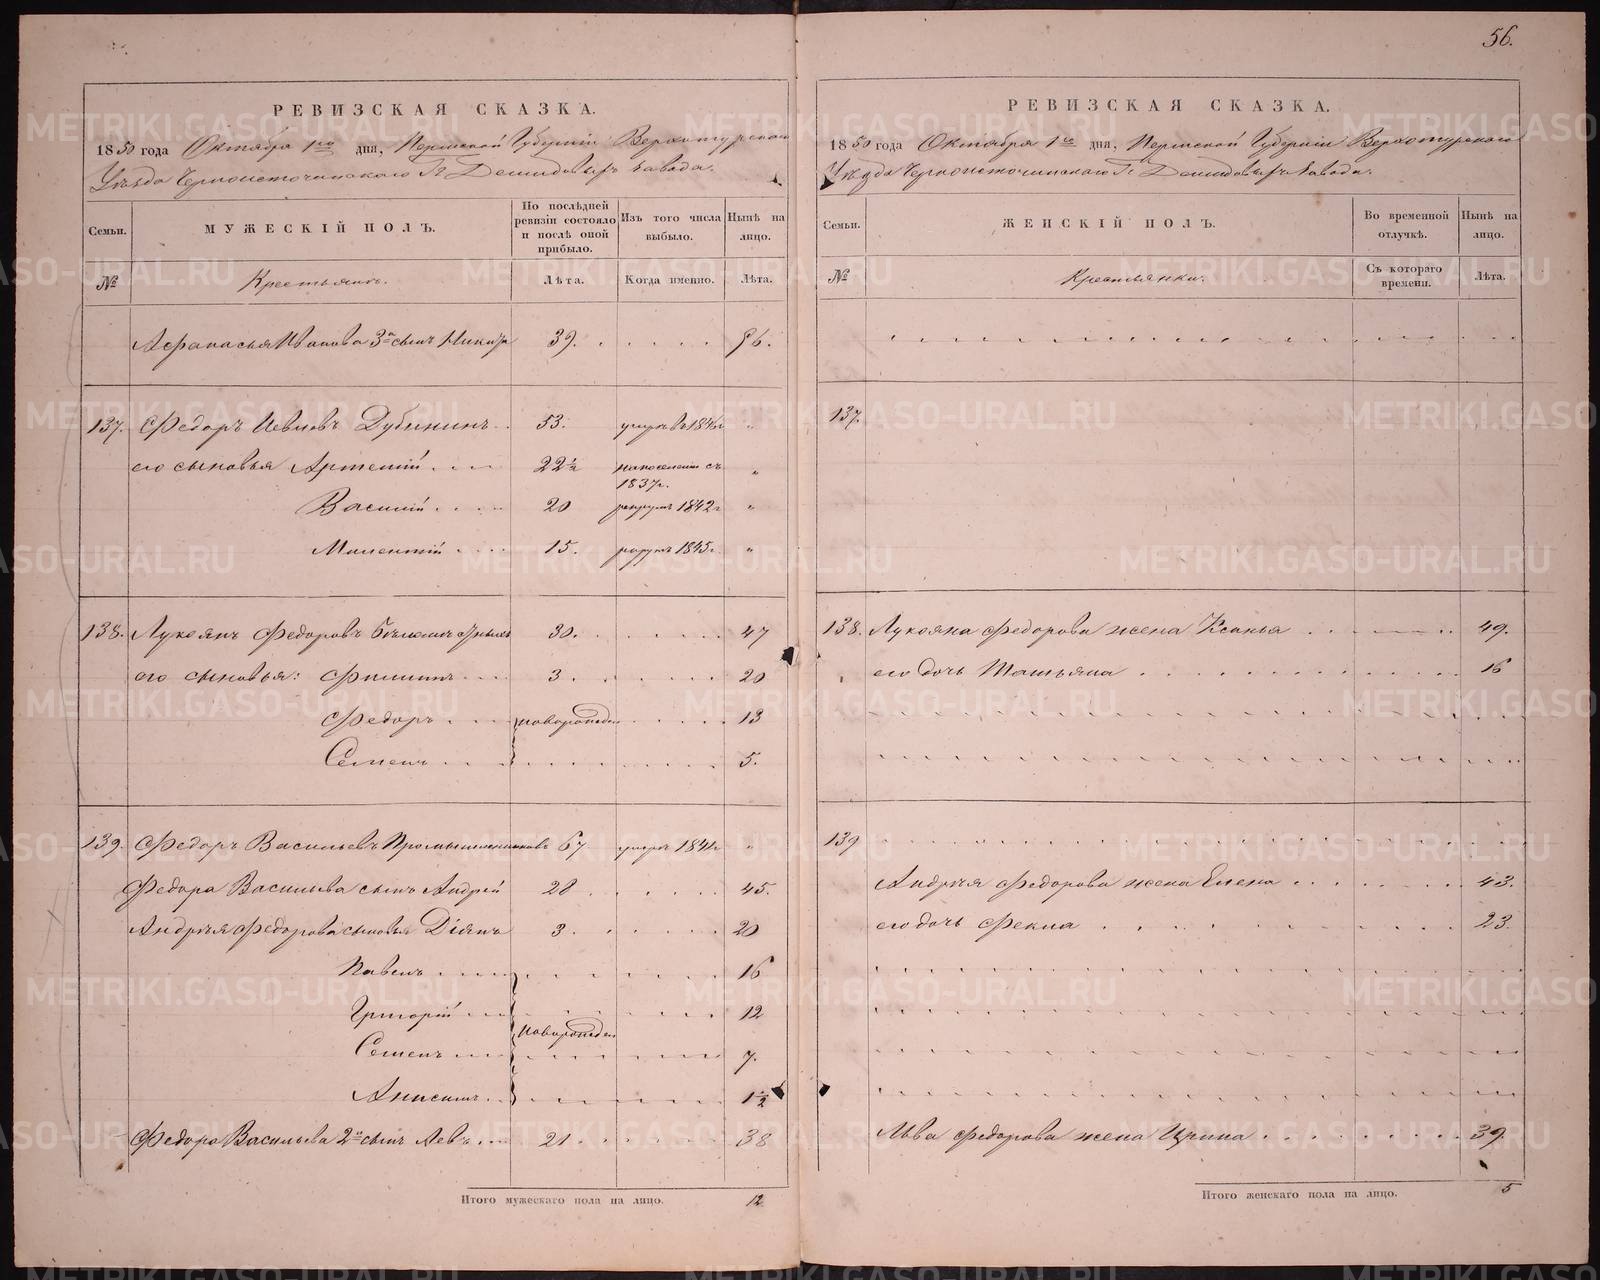 56.
РЕВИЗСКАЯ СКАЗКА.
1850 года Октября 1го дня, Пермской Губерніи Верхотурскаго
Уѣзда Черноисточинскаго Гг Демидовыхъ завода.
Семьи. МУЖЕСКІЙ ПОЛЪ. По послѣдней ревизіи состояло и послѣ оной прибыло. Изъ того числа выбыло. Нынѣ на лицо.
№ Крестьянъ. Лѣта. Когда именно. Лѣта.
Афанасья Иванова 3й сынъ Никита 39. 56.
137. Федоръ Иевлевъ Дубининъ 53. умеръ въ 1846г "
его сыновья Артемій 22½ на поселеніи съ 1837г. "
Василій 20 рекрутъ 1842г "
Мелентій 15. рекрутъ 1845г "
138. Лукоянъ Федоровъ 30. 47
его сыновья: Филипъ 3. 20
Федоръ новорожден 13
Семенъ 5.
139. Федоръ Васильевъ Промышленниковъ 67 умеръ 1841г "
Федора Васильева сынъ Андрей 28 45.
Андрея Федорова сыновья Діянъ 3. 20
Павелъ 16
Григорій 12
новорожден
Семенъ 7.
Анисимъ 1½
Федора Васильева 2й сынъ Левъ 21 38
Итого мужескаго пола на лицо. 12
РЕВИЗСКАЯ СКАЗКА.
1850 года Октября 1го дня, Пермской Губерніи Верхотурскаго
Уѣзда Черноисточинскаго Гг Демидовыхъ завода.
Семьи. ЖЕНСКІЙ ПОЛЪ. Во временной отлучкѣ. Нынѣ на лицо.
№ Крестьянки. Съ котораго времени. Лѣта.
137.
138. Лукояна Федорова жена Ксенья 49.
его дочь Татьяна 16
139
Андрея Федорова жена Елена 43.
его дочь Фекла 23.
Льва Федорова жена Ирина 39.
Итого женскаго пола на лицо. 5
METRIKI.GASO-URAL.RU